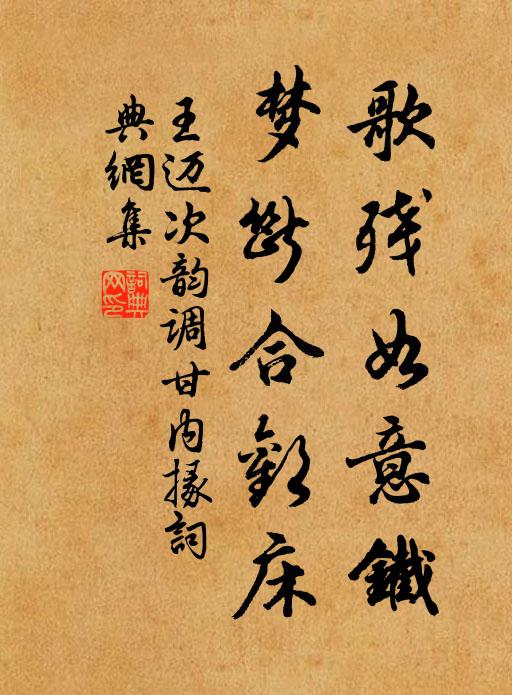 歌残如意鐵
梦断合歡床
王迈次韵调甘内掾詞
典網集
詞典网印